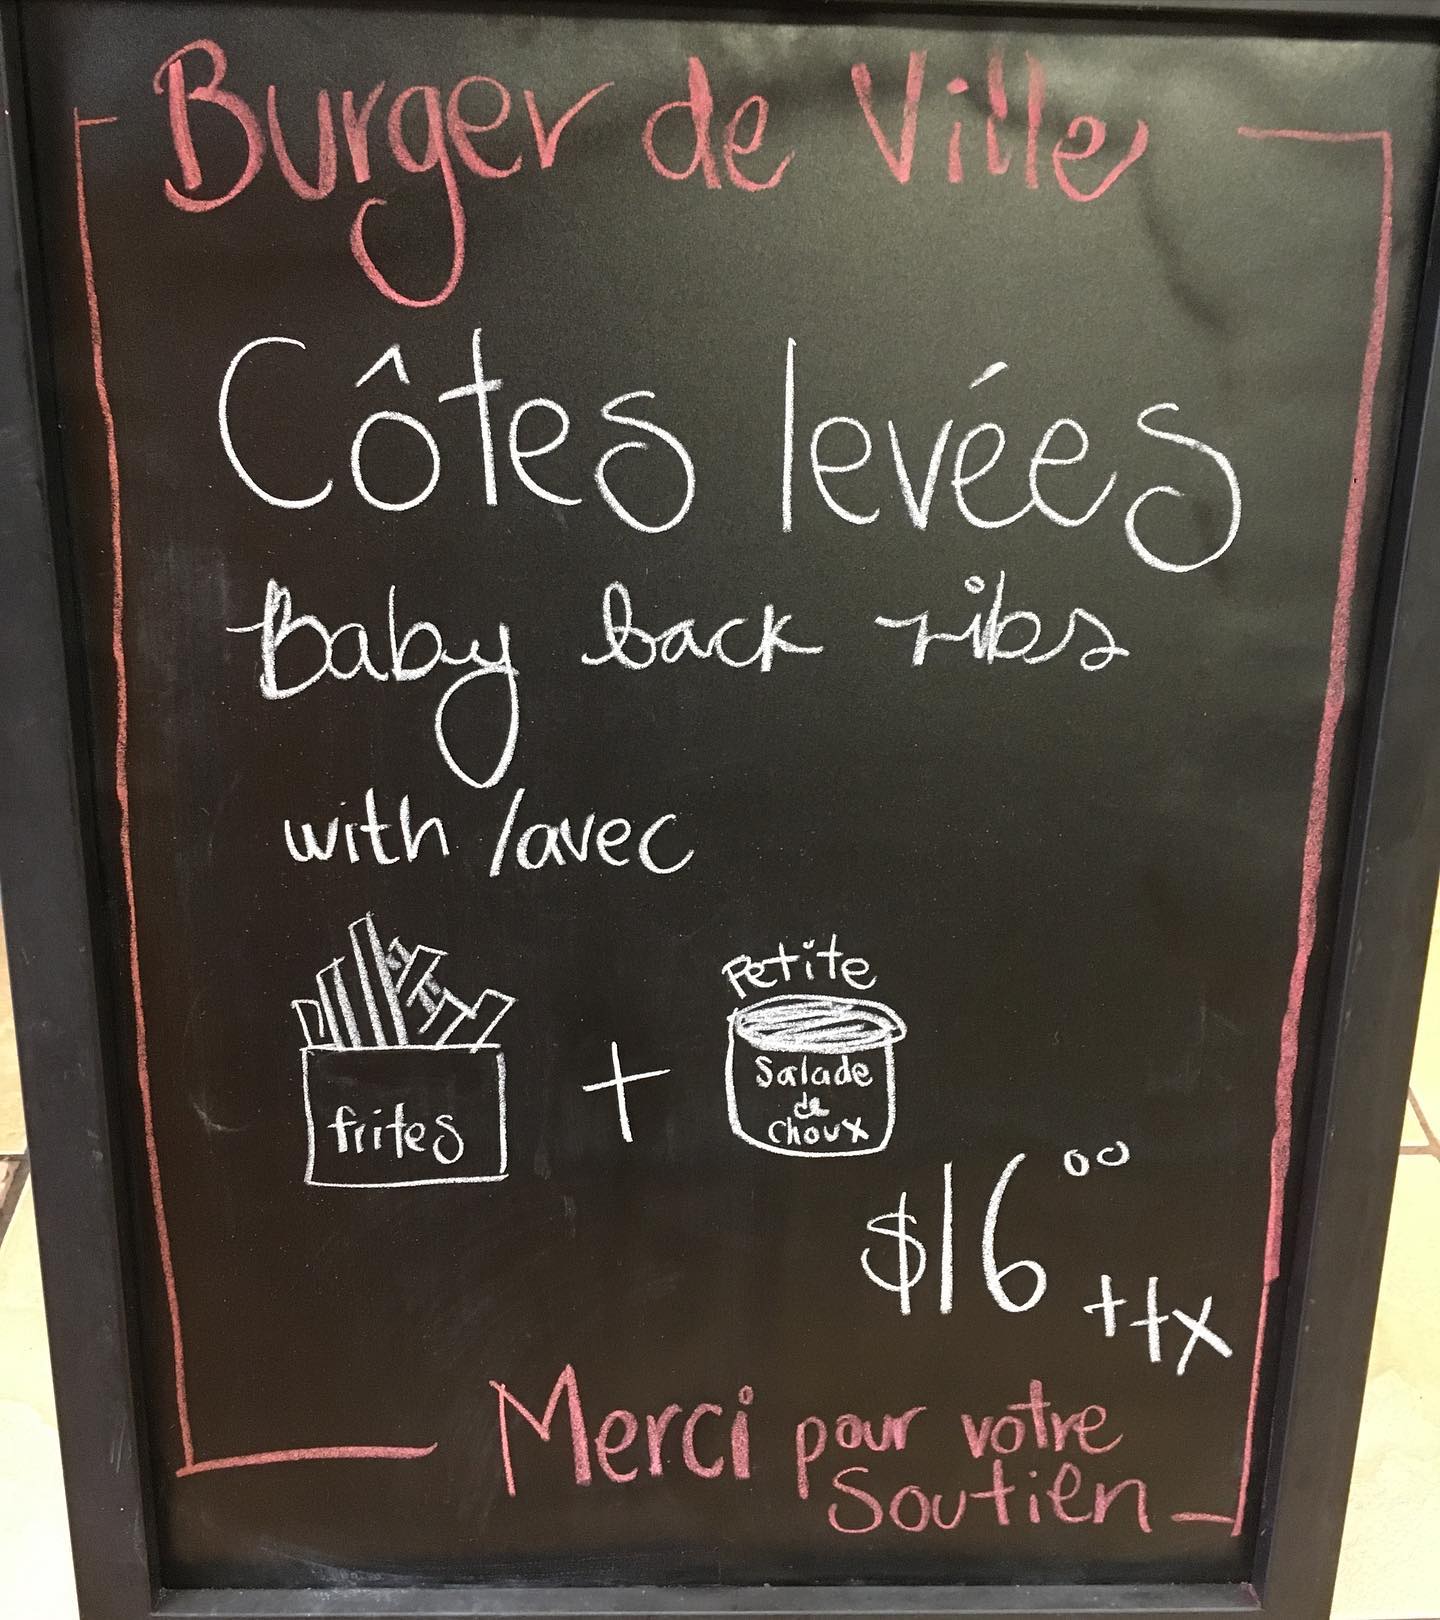 Burger de Ville
Côtes levées
Baby back ribs
with /avec
frites
+
Petite
Salade
de
choux
$16.00
+tx
Merci pour votre
Soutien